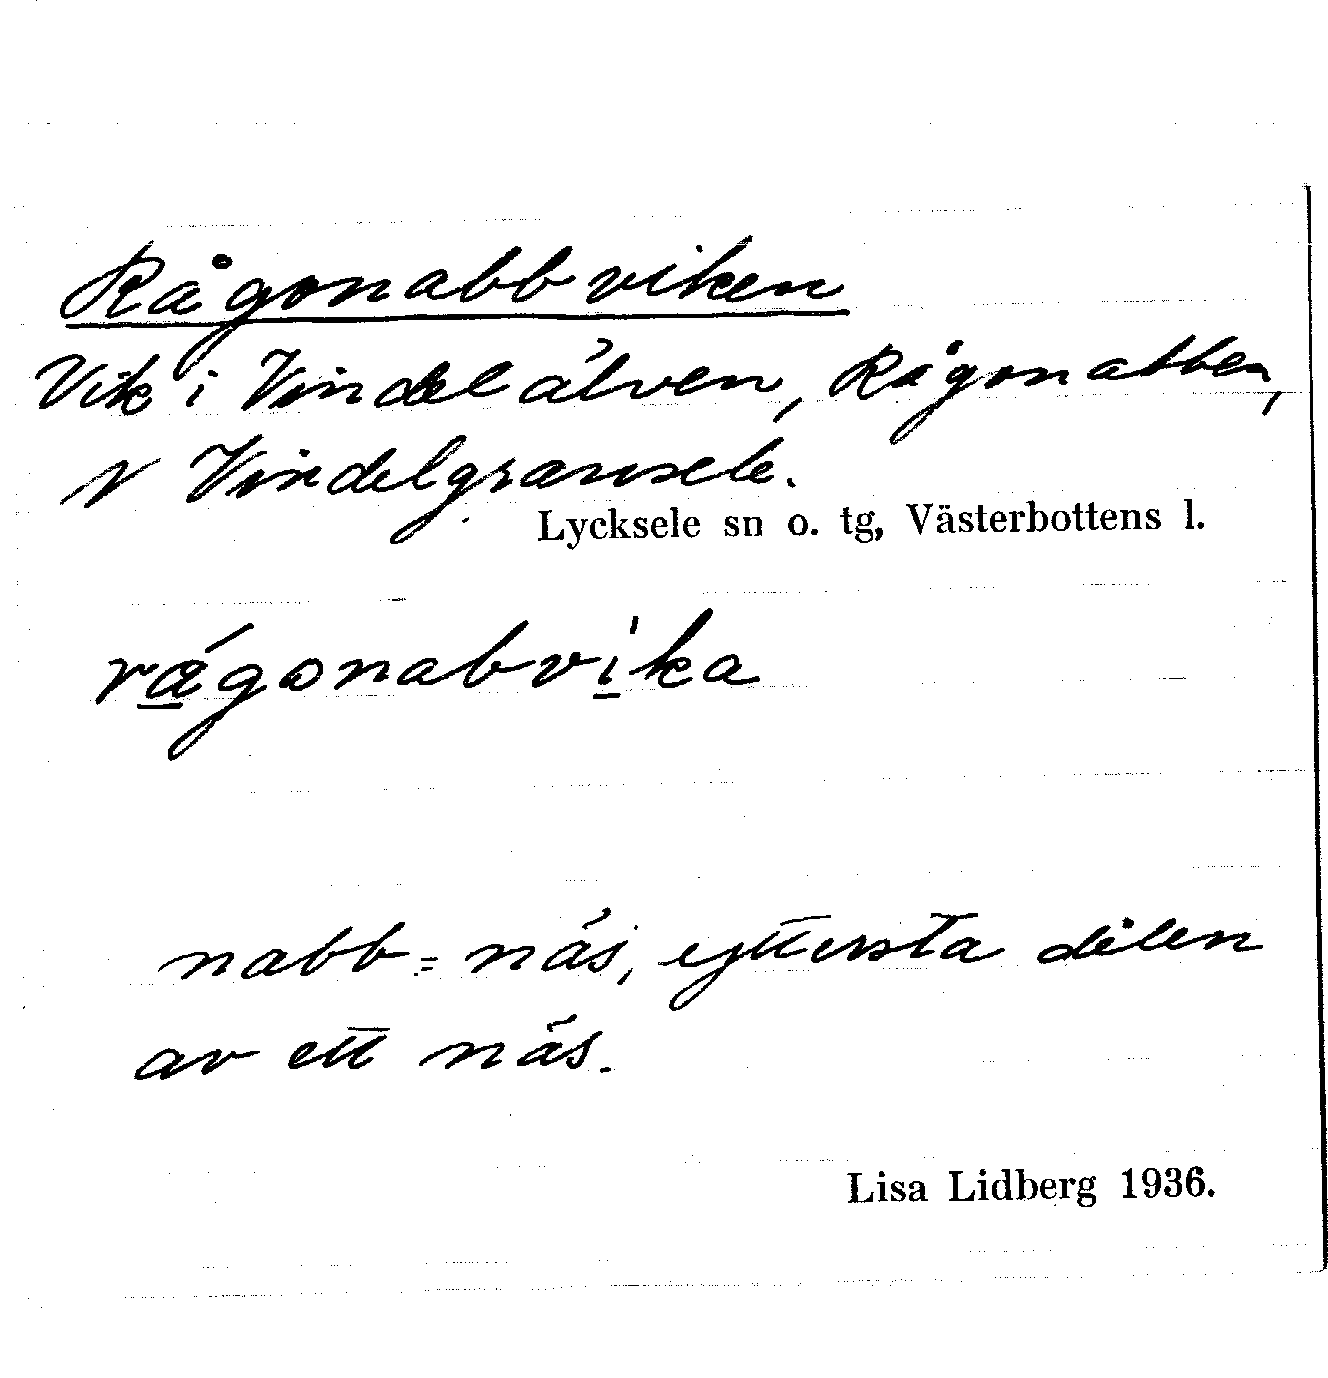 Rågonabbviken
Vik i Vindelälven, Rågonabben,
N Vindelgransele.
Lycksele sn o. tg, Västerbottens l.
rǽgonabvi̍ka
nabb = näs, yttersta delen
av ett näs.
Lisa Lidberg 1936.